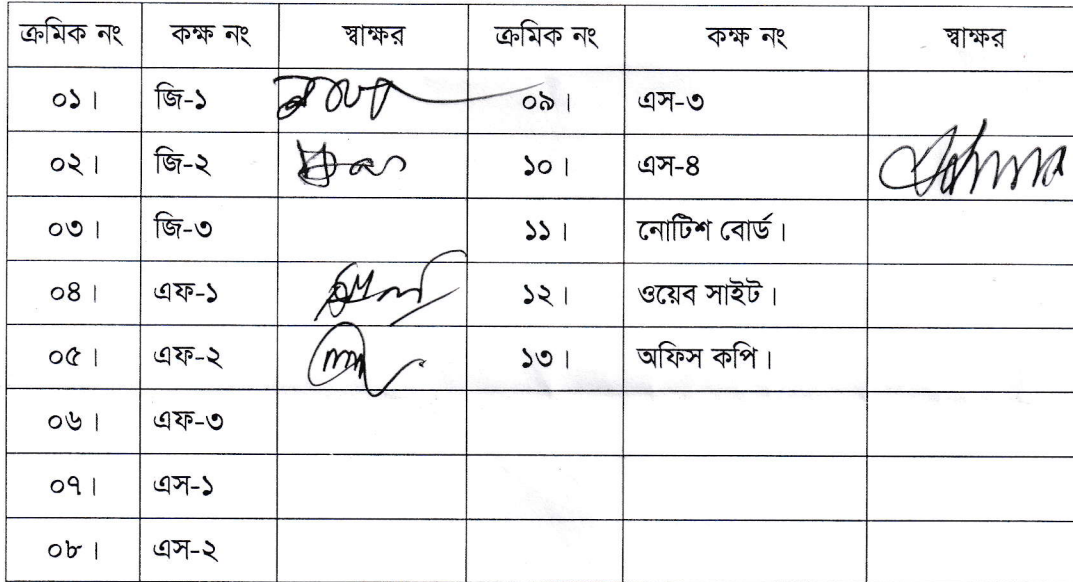 ক্রমিক নং কক্ষ নং স্বাক্ষর ক্রমিক নং কক্ষ নং স্বাক্ষর
০১। জি-১ ০৯। এস-৩
০২। জি-২ ১০। এস-৪
০৩। জি-৩ ১১। নোটিশ বোর্ড।
০৪। এফ-১ ১২। ওয়েব সাইট।
০৫। এফ-২ ১৩। অফিস কপি।
০৬। এফ-৩
০৭। এস-১
০৮। এস-২